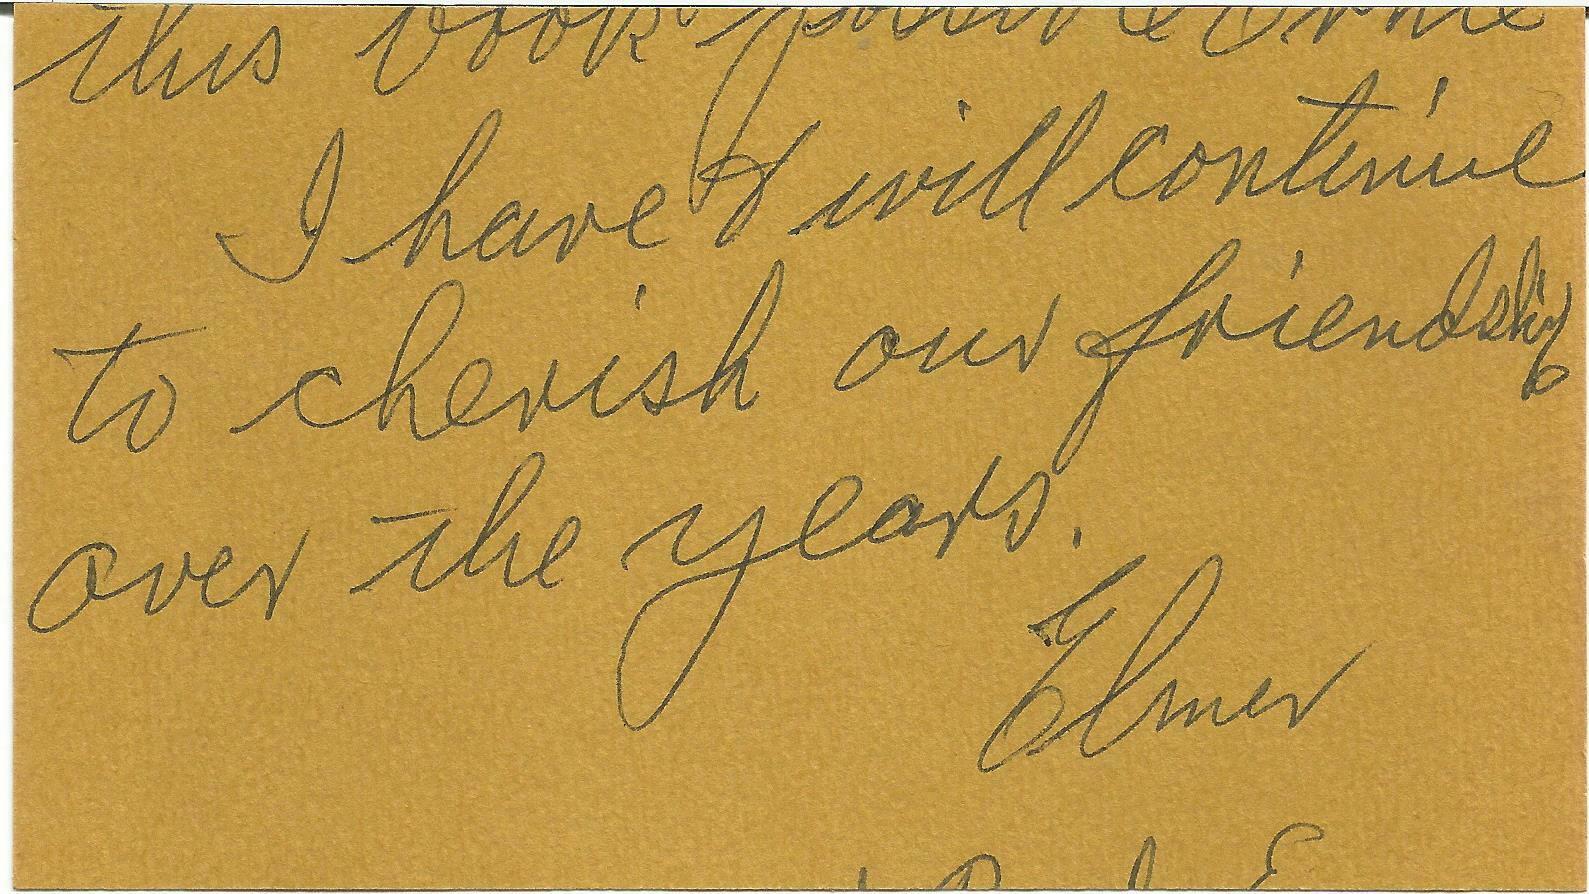 this book
I have & will continue
to cherish our friendship
over the years.
Elmer